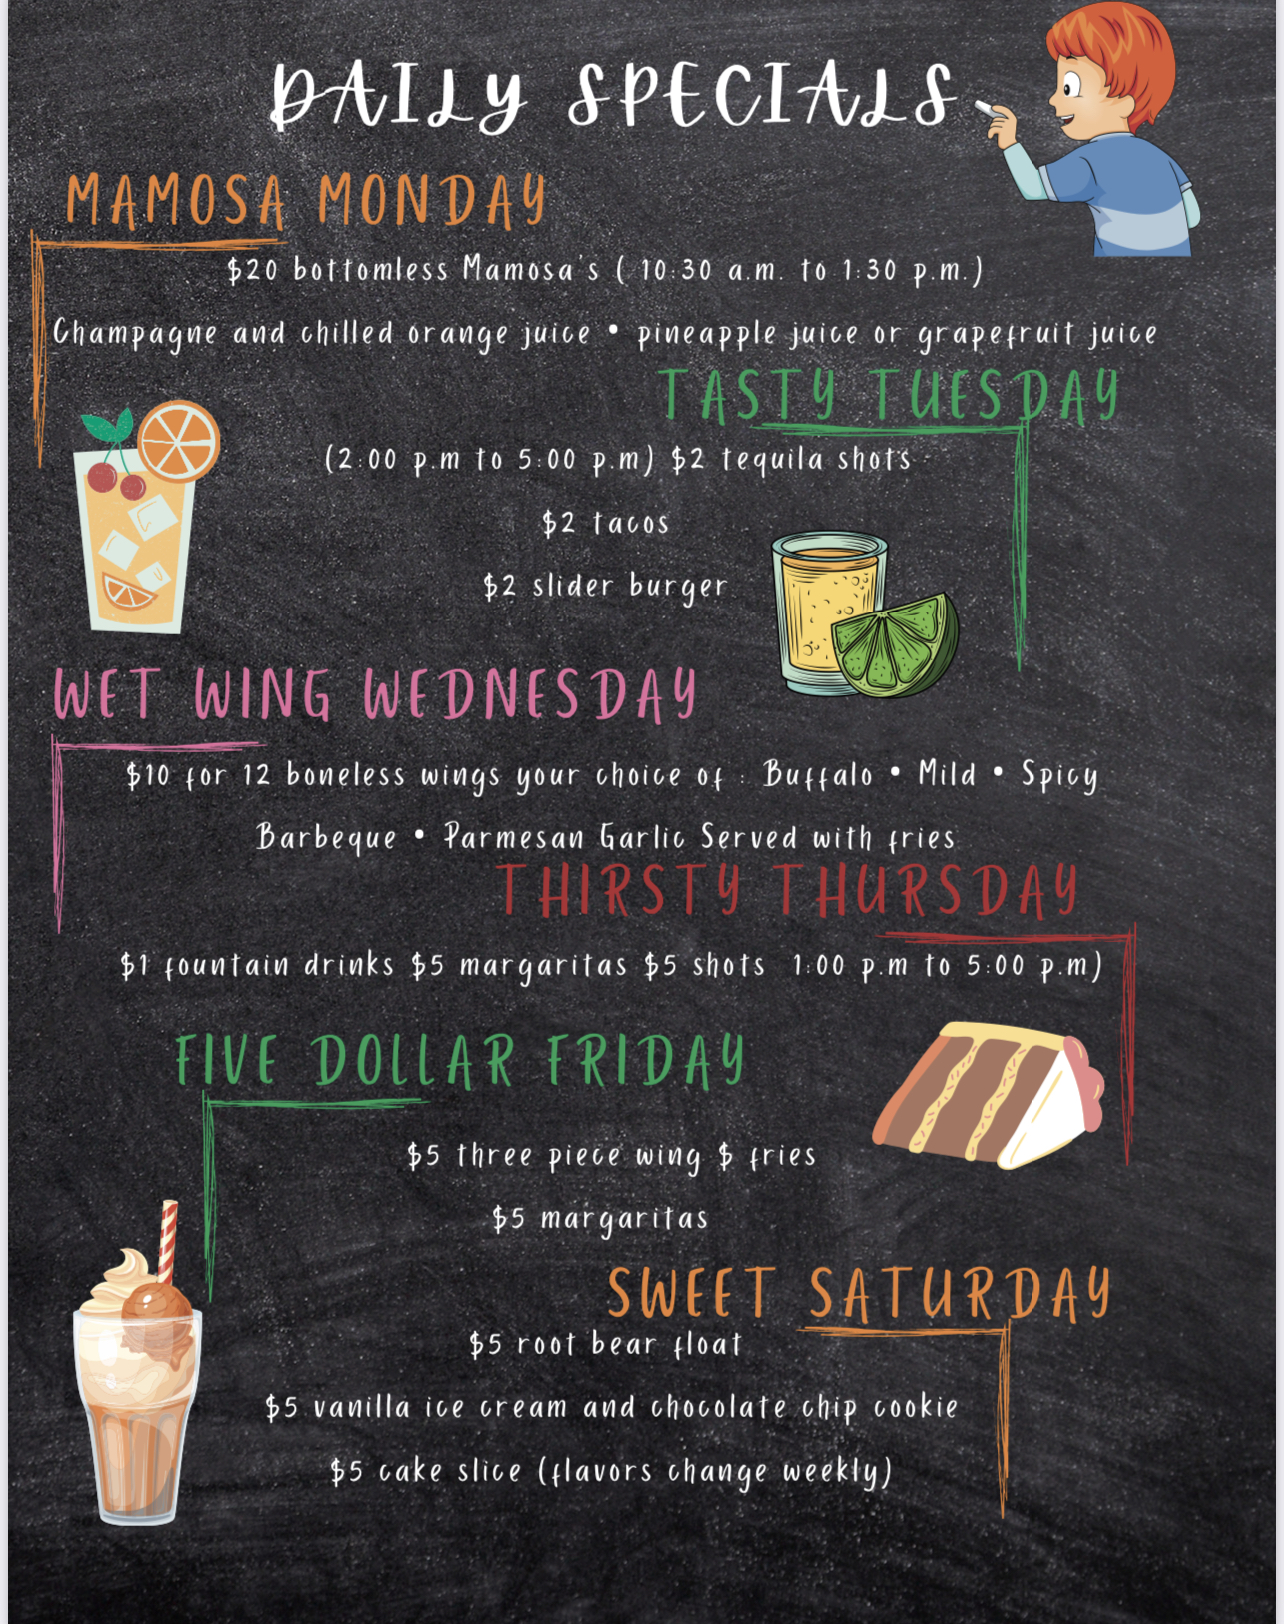 DAILY SPECIALS
MAMOSA MONDAY
$20 bottomless Mamosa's ( 10:30 a.m. to 1:30 p.m.)
Champagne and chilled orange juice • pineapple juice or grapefruit juice
TASTY TUESDAY
(2:00 p.m to 5:00 p.m) $2 tequila shots
$2 tacos
$2 slider burger
WET WING WEDNESDAY
$10 for 12 boneless wings your choice of : Buffalo • Mild • Spicy
Barbeque • Parmesan Garlic Served with fries
THIRSTY THURSDAY
$1 fountain drinks $5 margaritas $5 shots 1:00 p.m to 5:00 p.m)
FIVE DOLLAR FRIDAY
$5 three piece wing $ fries
$5 margaritas
SWEET SATURDAY
$5 root bear float
$5 vanilla ice cream and chocolate chip cookie
$5 cake slice (flavors change weekly)